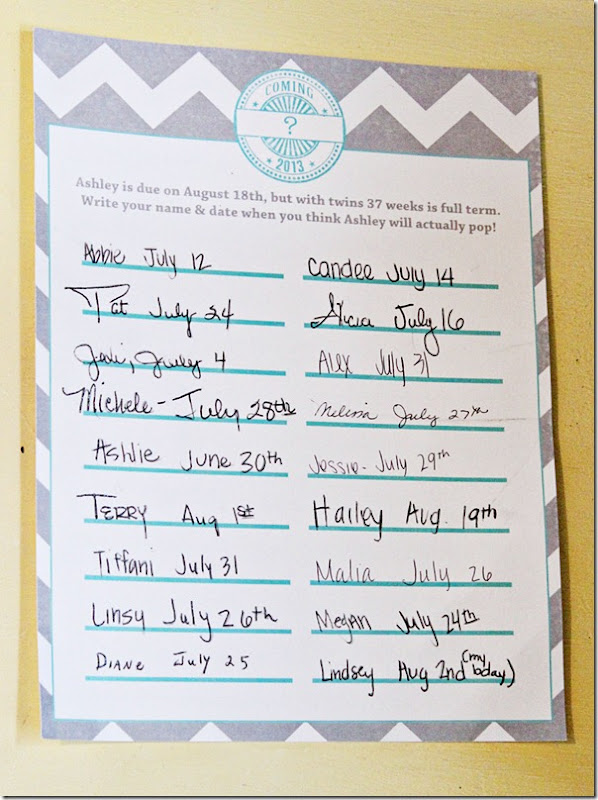 COMING
?
2013
Ashley is due on August 18th, but with twins 37 weeks is full term.
Write your name & date when you think Ashley will actually pop!
Abbie July 12
Pat July 24
July 4
Michele - July 28th
Ashlie June 30th
Terry Aug 1st
Tiffani July 31
Linsy July 26th
Diane July 25
Candee July 14
Alicia July 16
Alex July 31
Melissa July 27th
Jessie - July 29th
Hailey Aug. 19th
Malia July 26
Megan July 24th
Lindsey Aug 2nd (my bday)